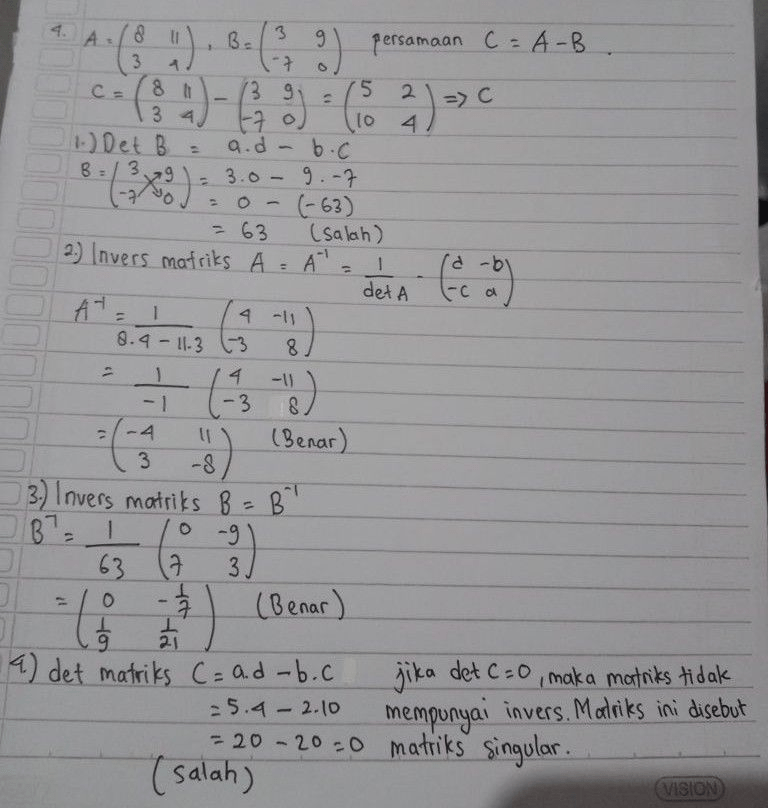 4. A = (8 11 / 3 4), B = (3 9 / -7 0) persamaan C = A - B.
C = (8 11 / 3 4) - (3 9 / -7 0) = (5 2 / 10 4) => C
1.) Det B = a.d - b.c
B = (3 9 / -7 0) = 3.0 - 9.-7
= 0 - (-63)
= 63 (salah)
2.) Invers matriks A = A⁻¹ = 1/det A - (d -b / -c a)
A⁻¹ = 1/8.4 - 11.3 (4 -11 / -3 8)
= 1/-1 (4 -11 / -3 8)
= (-4 11 / 3 -8) (Benar)
3.) Invers matriks B = B⁻¹
B⁻¹ = 1/63 (0 -9 / 7 3)
= (0 -1/7 / 1/9 1/21) (Benar)
4.) det matriks C = a.d - b.c jika det C = 0, maka matriks tidak
= 5.4 - 2.10 mempunyai invers. Matriks ini disebut
= 20 - 20 = 0 matriks singular.
(salah)
VISION